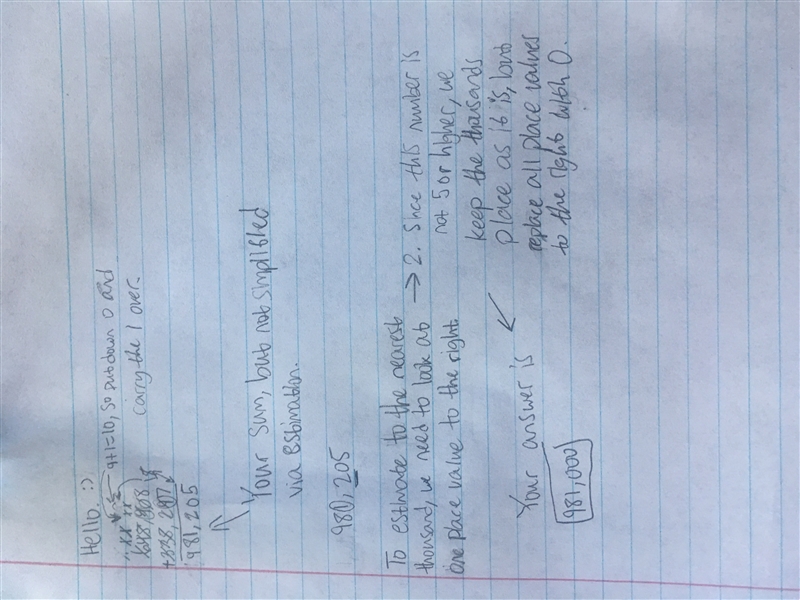 Hello. :)
9+1=10, so put down 0 and
carry the 1 over.
981,205
Your sum, but not simplified
via estimation.
980,205
To estimate to the nearest
thousand, we need to look at
one place value to the right.
→ 2. Since this number is
not 5 or higher, we
keep the thousands
place as it is, but
replace all place values
to the right with 0.
Your answer is
981,000